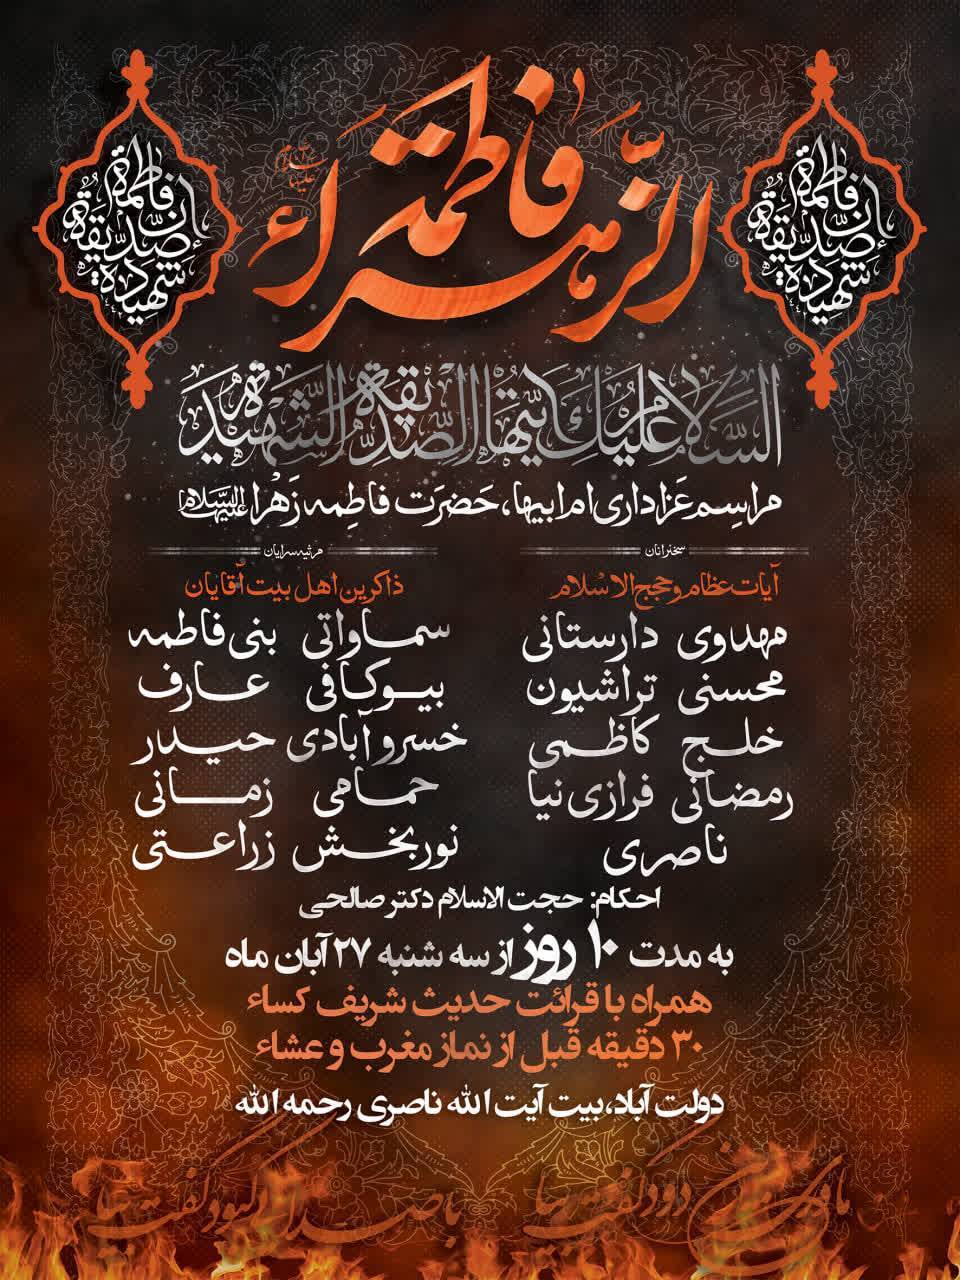 فاطمة
الزهراء
سلام الله علیها
إن فاطمة صدیقة شهیدة
إن فاطمة صدیقة شهیدة
السلام علیك أیتها الصدیقة الشهیدة
مراسم عزاداری ام ابیها، حضرت فاطمه زهرا علیها السلام
سخنرانان
آیات عظام و حجج الاسلام
مهدوی دارستانی
محسنی تراشیون
خلج کاظمی
رمضانی فرازی نیا
ناصری
مرثیه سرایان
ذاکرین اهل بیت آقایان
سماواتی بنی فاطمه
بیوکافی عارف
خسروآبادی حیدر
حمامی زمانی
نوربخش زراعتی
احکام: حجت الاسلام دکتر صالحی
به مدت ۱۰ روز از سه شنبه ۲۷ آبان ماه
همراه با قرائت حدیث شریف کساء
۳۰ دقیقه قبل از نماز مغرب و عشاء
دولت آباد، بیت آیت الله ناصری رحمه الله